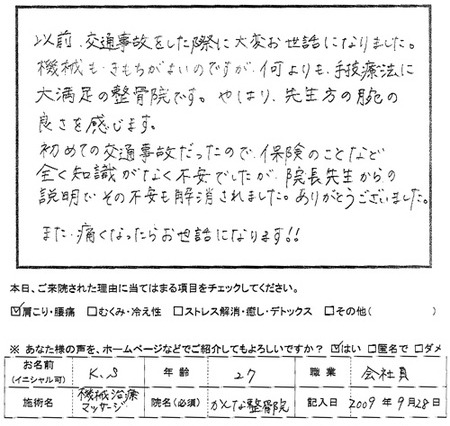 以前、交通事故をした際に大変お世話になりました。
機械も、きもちがよいのですが、何よりも、手技療法に
大満足の整骨院です。やはり、先生方の腕の
良さを感じます。
初めての交通事故だったので、保険のことなど
全く知識がなく不安でしたが、院長先生からの
説明でその不安も解消されました。ありがとうございました。
また、痛くなったらお世話になります!!
本日、ご来院された理由に当てはまる項目をチェックしてください。
☑肩こり・腰痛 □むくみ・冷え性 □ストレス解消・癒し・デトックス □その他( )
※ あなた様の声を、ホームページなどでご紹介してもよろしいですか? ☑はい □匿名で □ダメ
お名前(イニシャル可) K.S 年齢 27 職業 会社員
施術名 機械治療 マッサージ 院名(必須) かんな整骨院 記入日 2009年9月28日